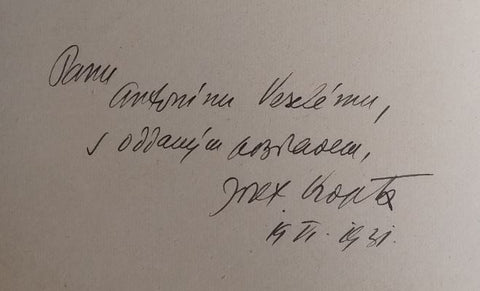 Panu
Antonínu Veselému,
s oddaným pozdravem,
Josef Kopta
19 VI. 1931.